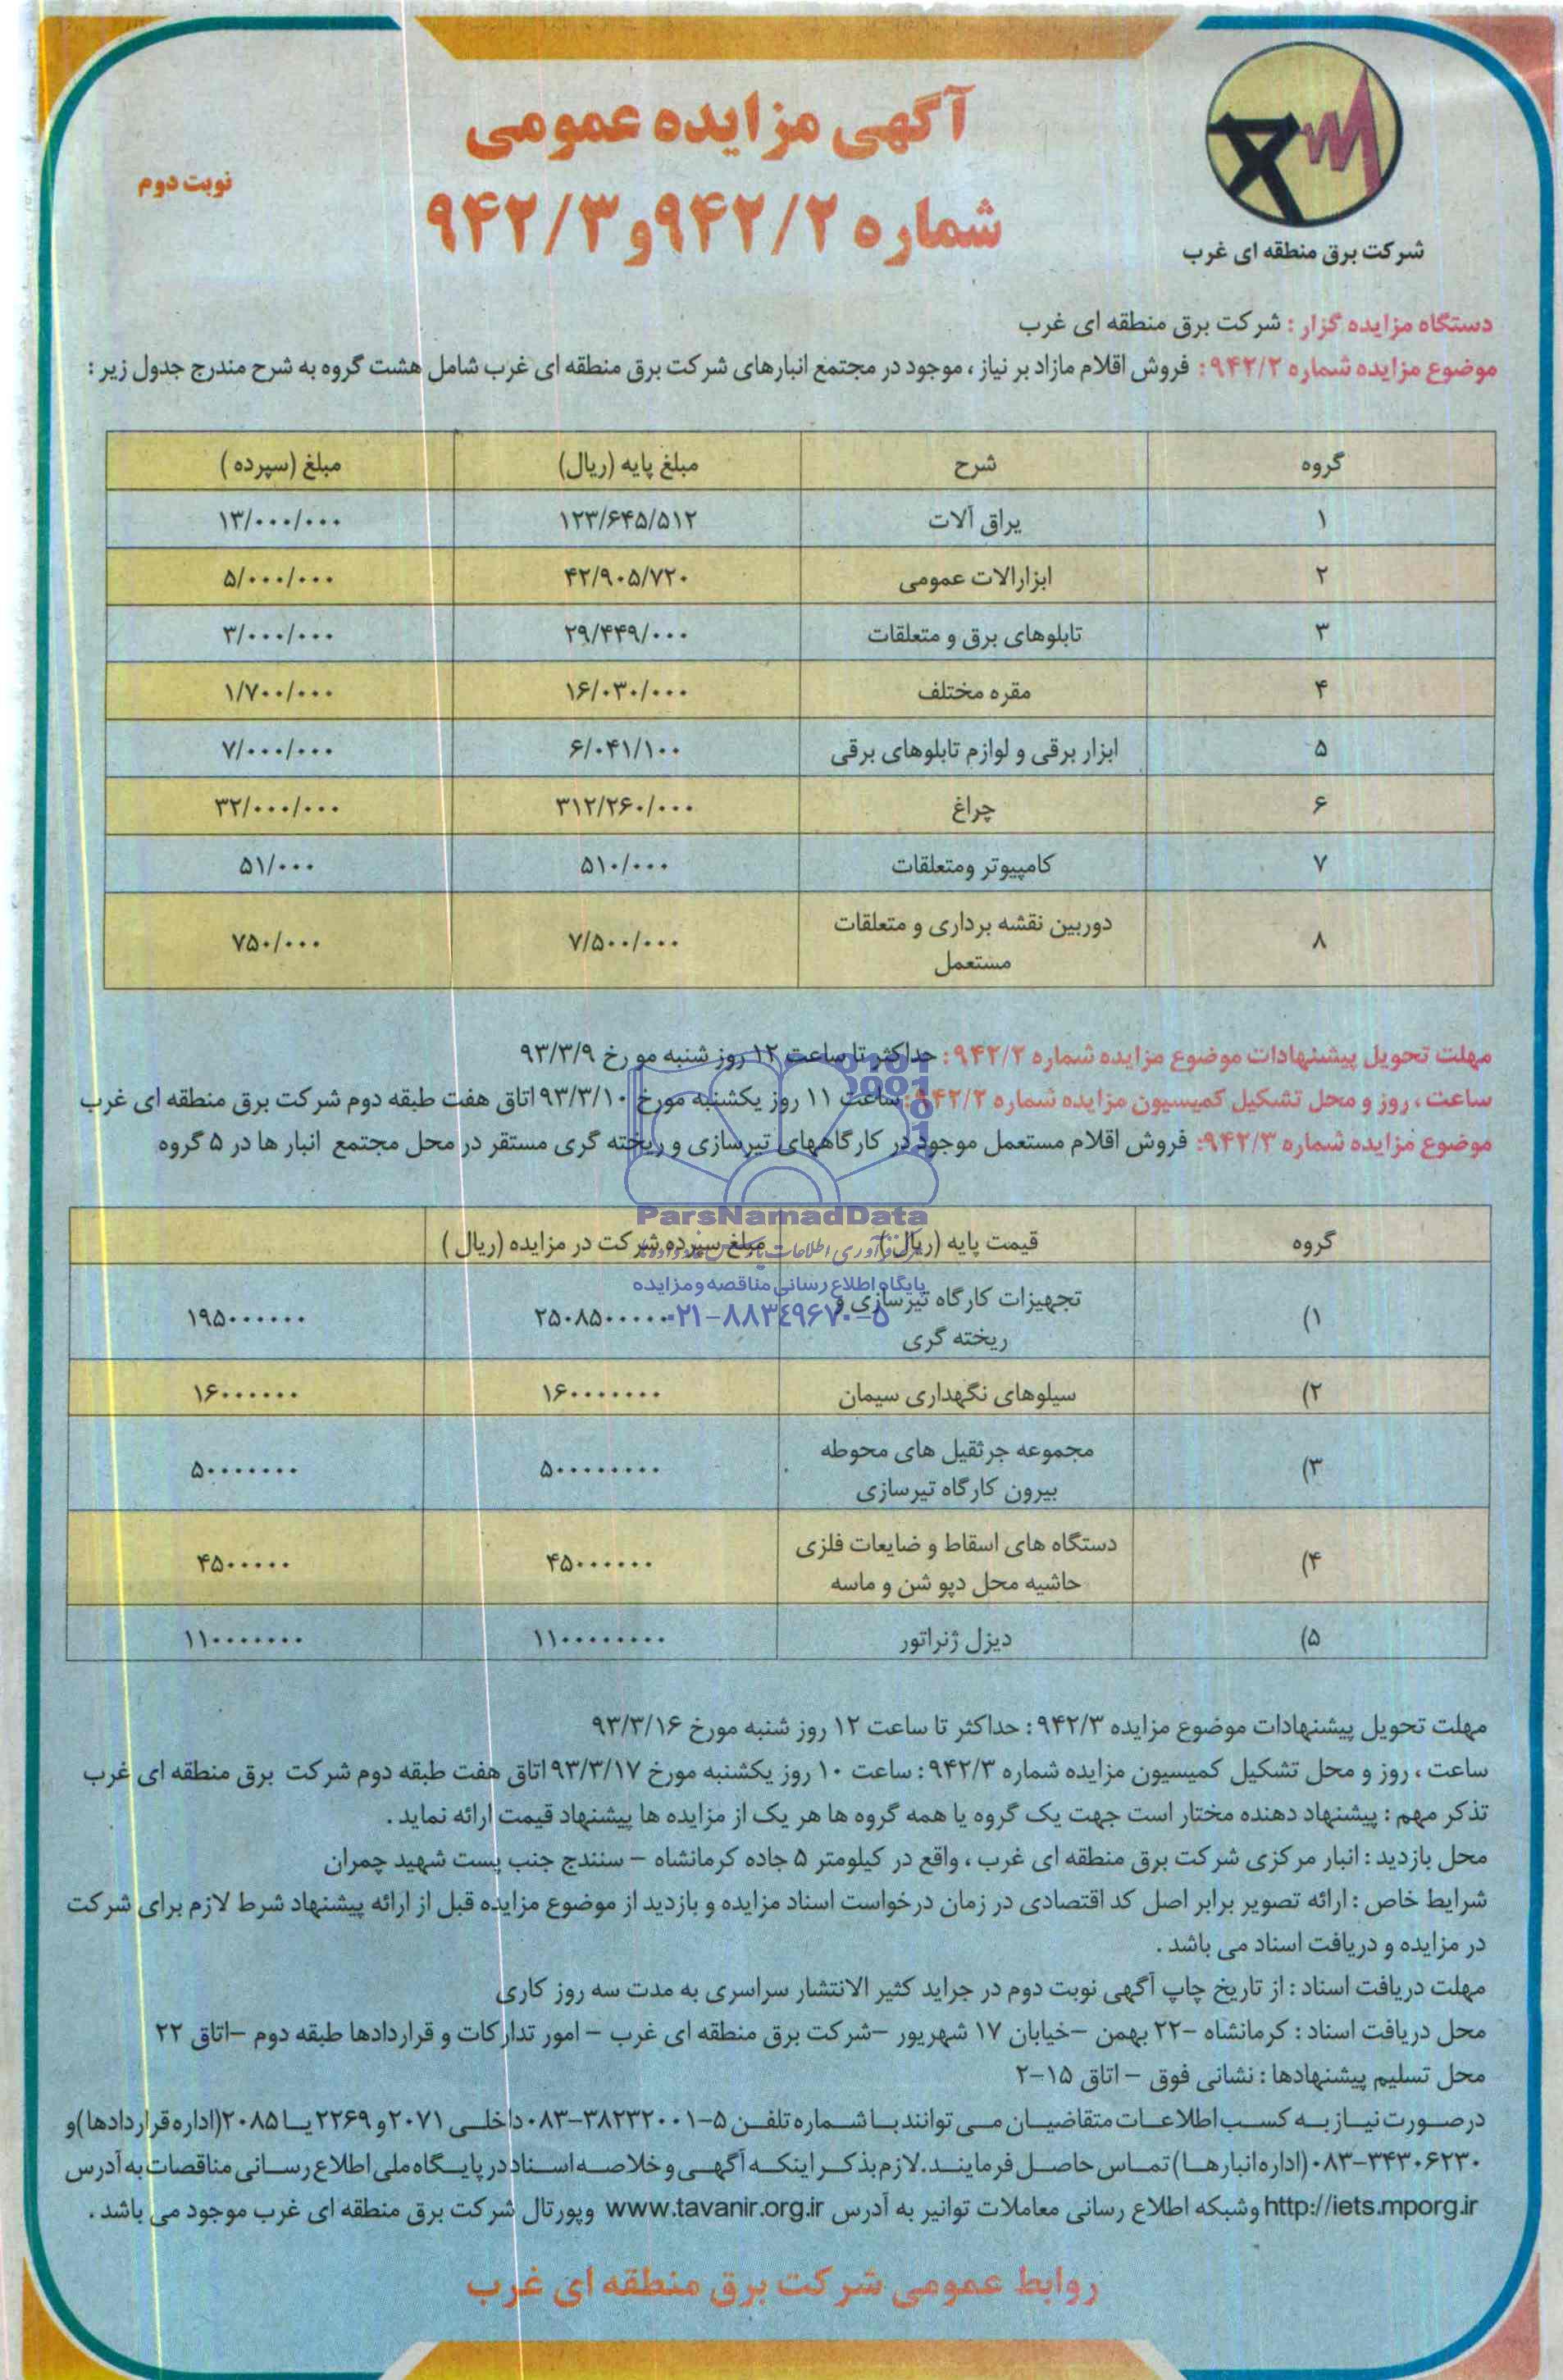 آگهی مزایده عمومی
شماره ۹۴۲/۲و۹۴۲/۳
نوبت دوم
شرکت برق منطقه ای غرب
دستگاه مزایده گزار : شرکت برق منطقه ای غرب
موضوع مزایده شماره ۹۴۲/۲: فروش اقلام مازاد بر نیاز ، موجود در مجتمع انبارهای شرکت برق منطقه ای غرب شامل هشت گروه به شرح مندرج جدول زیر :
گروه شرح مبلغ پایه (ریال) مبلغ (سپرده )
۱ یراق آلات ۱۲۳/۶۴۵/۵۱۲ ۱۳/۰۰۰/۰۰۰
۲ ابزارالات عمومی ۴۲/۹۰۵/۷۲۰ ۵/۰۰۰/۰۰۰
۳ تابلوهای برق و متعلقات ۲۹/۴۴۹/۰۰۰ ۳/۰۰۰/۰۰۰
۴ مقره مختلف ۱۶/۰۳۰/۰۰۰ ۱/۷۰۰/۰۰۰
۵ ابزار برقی و لوازم تابلوهای برقی ۶/۰۴۱/۱۰۰ ۷/۰۰۰/۰۰۰
۶ چراغ ۳۱۲/۲۶۰/۰۰۰ ۳۲/۰۰۰/۰۰۰
۷ کامپیوتر ومتعلقات ۵۱۰/۰۰۰ ۵۱/۰۰۰
۸ دوربین نقشه برداری و متعلقات ۷/۵۰۰/۰۰۰ ۷۵۰/۰۰۰
مستعمل
مهلت تحویل پیشنهادات موضوع مزایده شماره ۹۴۲/۲: حداکثر تا ساعت ۱۲ روز شنبه مورخ ۹۳/۳/۹
ساعت ، روز و محل تشکیل کمیسیون مزایده شماره ۹۴۲/۲: ساعت ۱۱ روز یکشنبه مورخ ۹۳/۳/۱۰ اتاق هفت طبقه دوم شرکت برق منطقه ای غرب
موضوع مزایده شماره ۹۴۲/۳: فروش اقلام مستعمل موجود در کارگاههای تیرسازی و ریخته گری مستقر در محل مجتمع انبار ها در ۵ گروه
ParsNamadData
گروه قیمت پایه (ریال) مبلغ سپرده شرکت در مزایده (ریال )
پایگاه اطلاع رسانی مناقصه و مزایده
۰۲۱-۸۸۳۴۹۶۷۰-۵
۱) تجهیزات کارگاه تیرسازی و ۱۹۵۰۰۰۰۰۰
ریخته گری
۲) سیلوهای نگهداری سیمان ۱۶۰۰۰۰۰۰۰ ۱۶۰۰۰۰۰۰
۳) مجموعه جرثقیل های محوطه ۵۰۰۰۰۰۰۰۰ ۵۰۰۰۰۰۰۰
بیرون کارگاه تیرسازی
۴) دستگاه های اسقاط و ضایعات فلزی ۴۵۰۰۰۰۰۰ ۴۵۰۰۰۰۰
حاشیه محل دپو شن و ماسه
۵) دیزل ژنراتور ۱۱۰۰۰۰۰۰۰۰ ۱۱۰۰۰۰۰۰۰
مهلت تحویل پیشنهادات موضوع مزایده ۹۴۲/۳: حداکثر تا ساعت ۱۲ روز شنبه مورخ ۹۳/۳/۱۶
ساعت ، روز و محل تشکیل کمیسیون مزایده شماره ۹۴۲/۳: ساعت ۱۰ روز یکشنبه مورخ ۹۳/۳/۱۷ اتاق هفت طبقه دوم شرکت برق منطقه ای غرب
تذکر مهم : پیشنهاد دهنده مختار است جهت یک گروه یا همه گروه ها هر یک از مزایده ها پیشنهاد قیمت ارائه نماید .
محل بازدید : انبار مرکزی شرکت برق منطقه ای غرب ، واقع در کیلومتر ۵ جاده کرمانشاه - سنندج جنب پست شهید چمران
شرایط خاص : ارائه تصویر برابر اصل کد اقتصادی در زمان درخواست اسناد مزایده و بازدید از موضوع مزایده قبل از ارائه پیشنهاد شرط لازم برای شرکت
در مزایده و دریافت اسناد می باشد .
مهلت دریافت اسناد : از تاریخ چاپ آگهی نوبت دوم در جراید کثیر الانتشار سراسری به مدت سه روز کاری
محل دریافت اسناد : کرمانشاه -۲۲ بهمن -خیابان ۱۷ شهریور -شرکت برق منطقه ای غرب - امور تدارکات و قراردادها طبقه دوم -اتاق ۲۲
محل تسلیم پیشنهادها : نشانی فوق - اتاق ۱۵-۲
درصورت نیاز به کسب اطلاعات متقاضیان می توانند با شماره تلفن ۵-۳۸۲۳۲۰۰۱-۰۸۳ داخلی ۲۰۷۱ و ۲۲۶۹ یا ۲۰۸۵(اداره قراردادها)و
۳۴۳۰۶۲۳۰-۰۸۳ (اداره انبارها) تماس حاصل فرمایند. لازم بذکر اینکه آگهی و خلاصه اسناد در پایگاه ملی اطلاع رسانی مناقصات به آدرس
http://iets.mporg.ir وشبکه اطلاع رسانی معاملات توانیر به آدرس www.tavanir.org.ir وپورتال شرکت برق منطقه ای غرب موجود می باشد .
روابط عمومی شرکت برق منطقه ای غرب